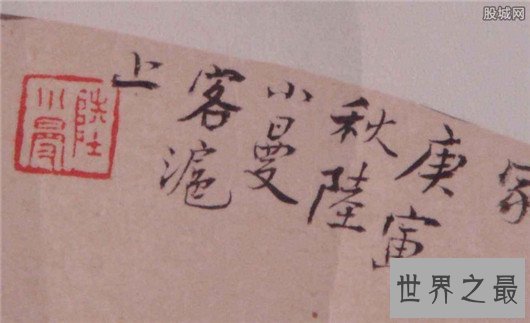 庚寅
秋陸
小曼
客滬
上
陸
小曼
股城网
世界之最